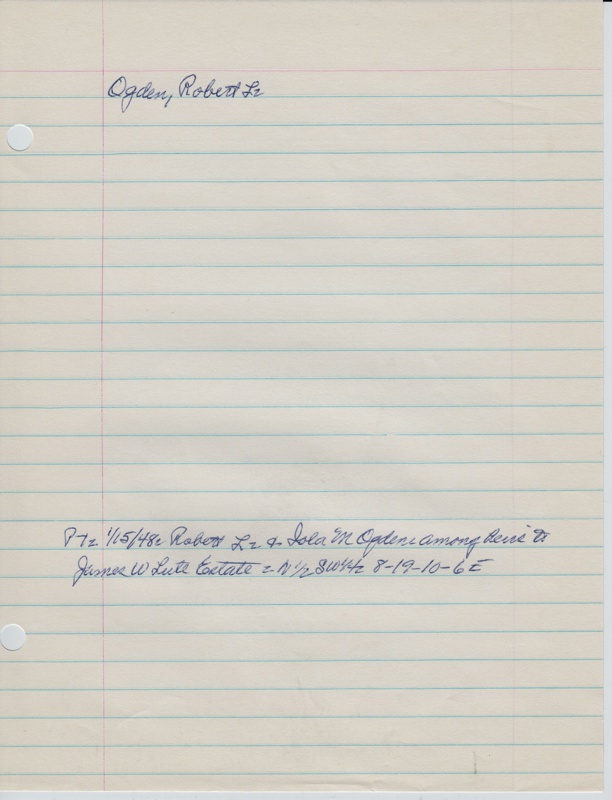 Ogden, Robert L.
P-72 1/15/48. Robert L. & Iola M Ogden. among heirs to
James W Lute Estate - N 1/2 SW 1/4. 8-19-10-6E